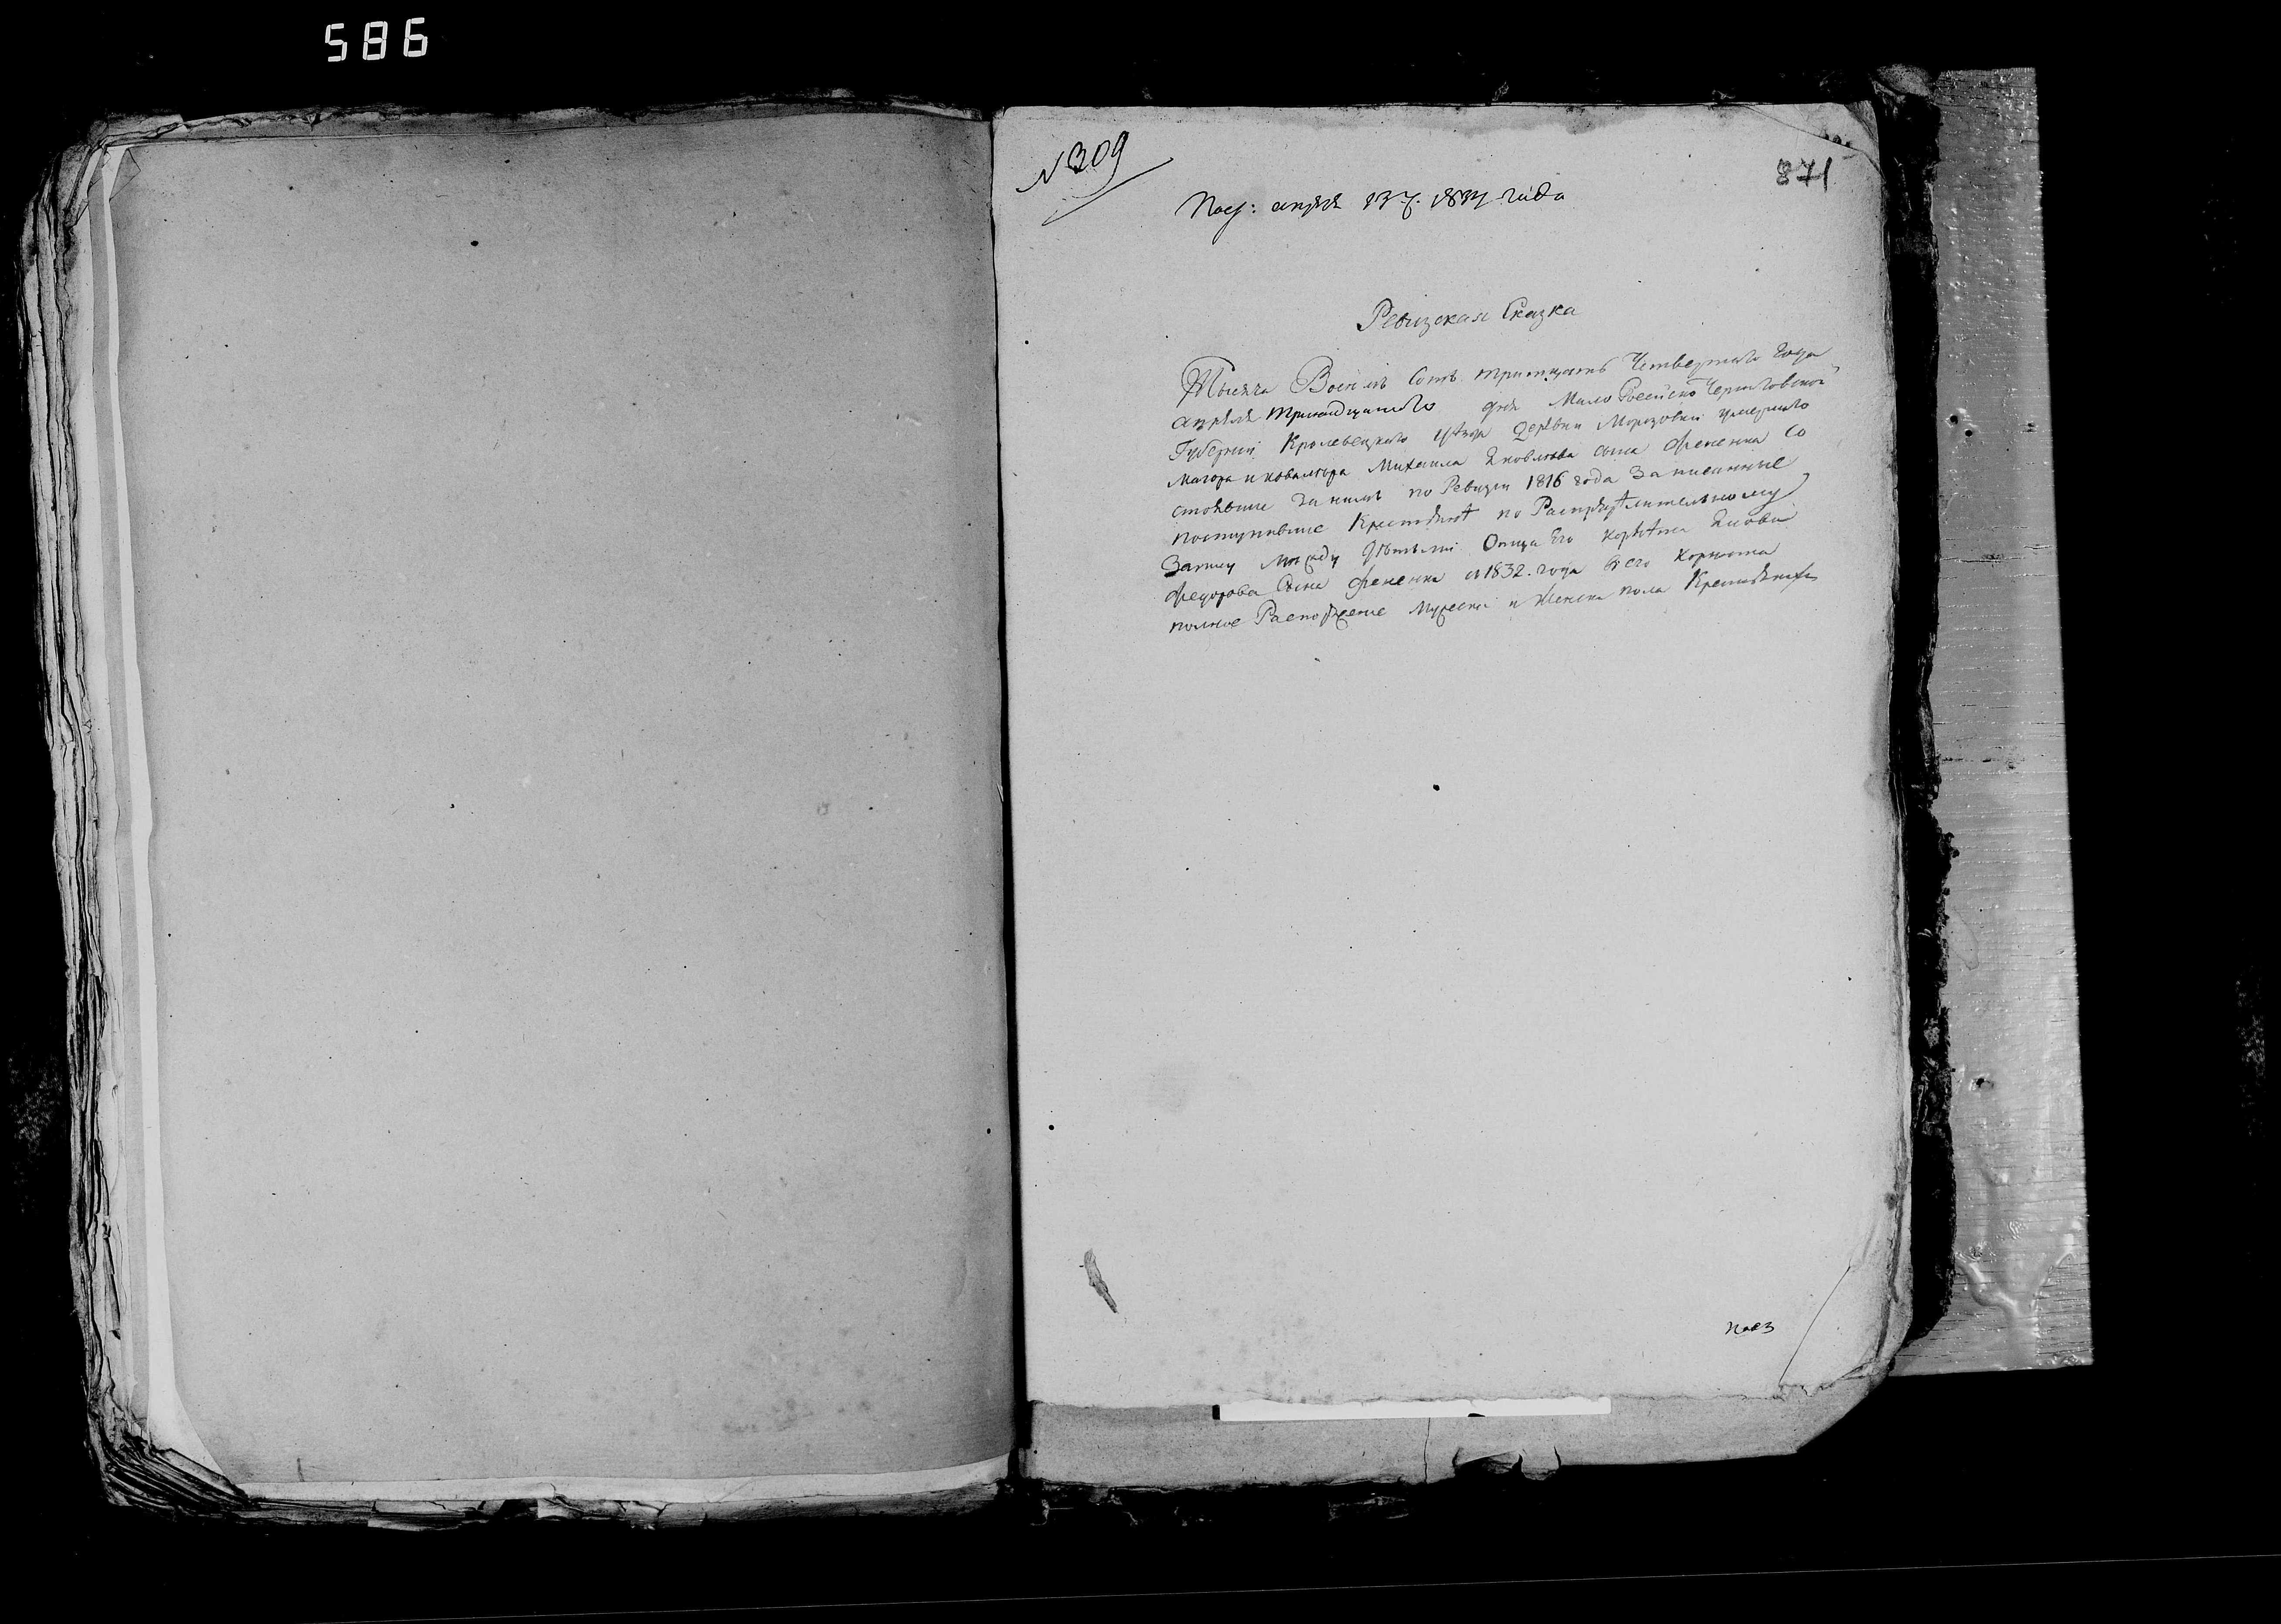 586
N 309
871
апреля 13 1834 года
Ревизская Сказка
Тысяча Восемь Сотъ тритцать Четвертого Года
апреля тринадцатого дня Мало Росийско Черниговской
Губернии Кролевецкого уезда деревни Морозовки умершого
маиора и кавалера Михаила Яковлева сына Фененка Со
стоявшие за нимъ по Ревизии 1816 года Записанные
поступившие Крестьяне по Разделительному
Запису между детьми Отца Его Корнета Якова
Федорова Сына Фененка с 1832. года в его Корнета
полное Распоряжение Мужеска и Женска пола Крестьянахъ